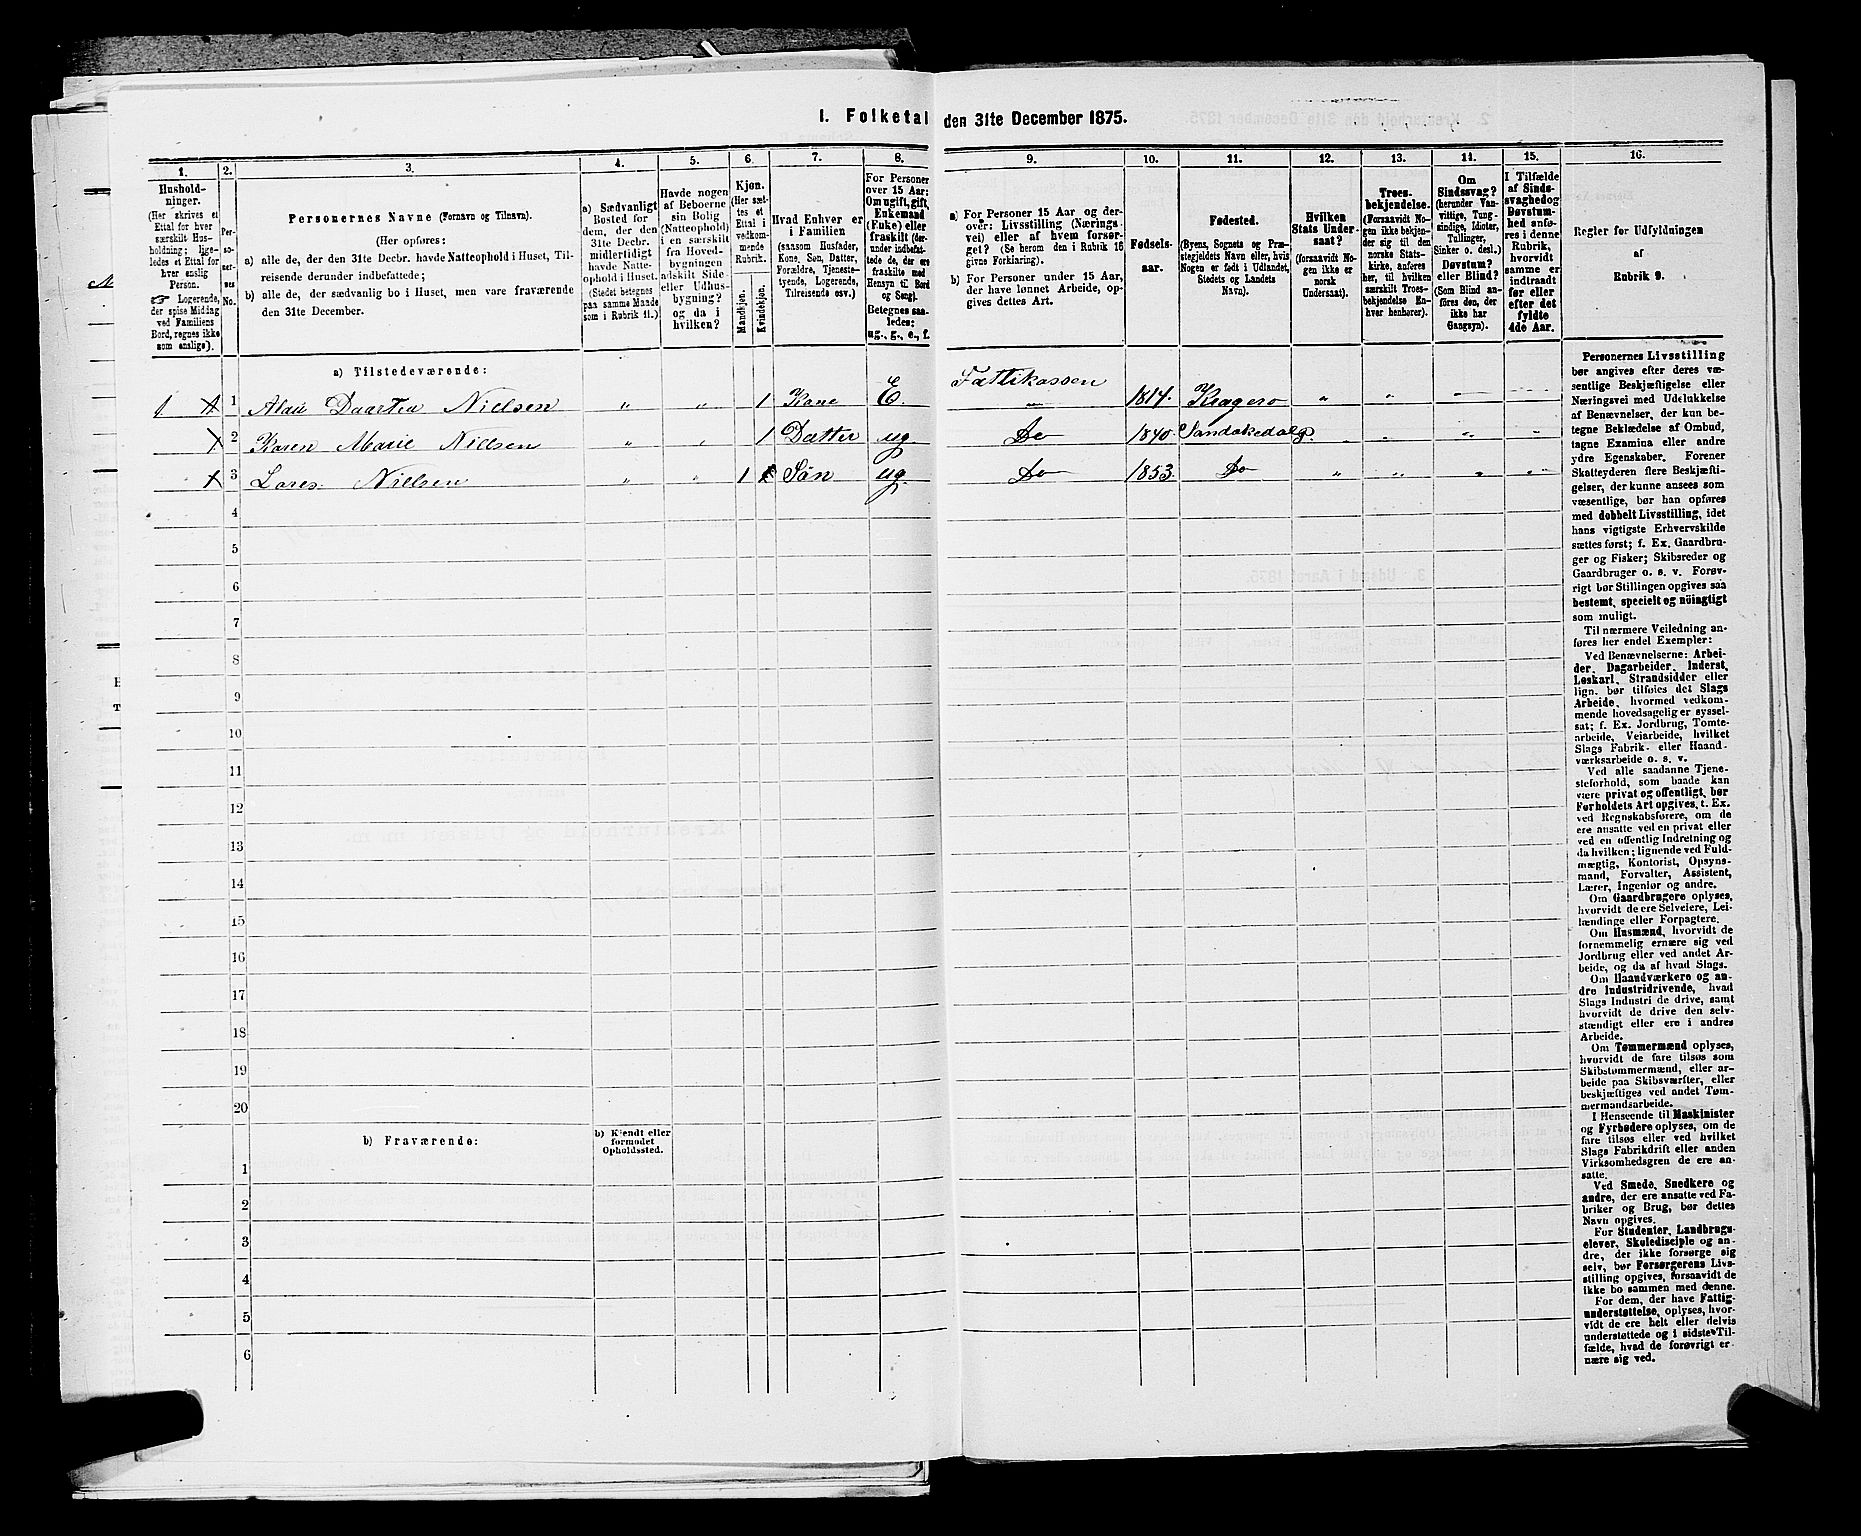 I. Folketal den 31te December 1875.
1.
Hushold-
ninger.
(Her skrives et
Ettal for hver
særskilt Hus-
holdning; lige-
ledes et Ettal for
hver enslig
Person.
☞ Logerende,
der spise Middag
ved Familiens
Bord, regnes ikke
som enslige).
2.
Per-
so-
ner-
nes
No.
3.
Personernes Navne (Fornavn og Tilnavn).
(Her opføres:
a) alle de, der den 31te Decbr. havde Natteophold i Huset, Til-
reisende derunder indbefattede;
b) alle de, der sædvanlig bo i Huset, men vare fraværende
den 31te December.
4.
a) Sædvanligt
Bosted for
dem, der den
31te Decbr.
midlertidigt
havde Natte-
ophold i Huset.
(Stedet betegnes
paa samme Maade
som i Rubrik 11.)
5.
Havde nogen
af Beboerne
sin Bolig
(Natteophold)
i en særskilt
fra Hoved-
bygningen
adskilt Side-
eller Udhus-
bygning?
og da i
hvilken?
6.
Kjøn.
(Her sæt-
tes et
Ettal i
vedkom-
mende
Rubrik.)
Mandkjøn.
Kvindekjøn.
7.
Hvad Enhver er
i Familien
(saasom Husfader,
Kone, Søn, Datter,
Forældre, Tjeneste-
tyende, Logerende,
Tilreisende osv.)
8.
For Personer
over 15 Aar:
Om ugift, gift,
Enkemand
(Enke) eller
fraskilt (der-
under indbefat-
tede de, der ere
fraskilte med
Hensyn til Bord
og Seng).
Betegnes saa-
ledes:
ug., g., e., f.
9.
a) For Personer 15 Aar og der-
over: Livsstilling (Nærings-
vei) eller af hvem forsør-
get? (Se herom den i Rubrik 16
givne Forklaring).
b) For Personer under 15 Aar,
der have lønnet Arbeide, op-
gives dettes Art.
10.
Fødsels-
aar.
11.
Fødested.
(Byens, Sognets og Præ-
stegjeldets Navn eller, hvis
Nogen er født i Udlandet,
Stedets og Landets
Navn).
12.
Hvilken
Stats Under-
saat?
(forsaavidt No-
gen ikke er
norsk
Undersaat).
13.
Troes-
bekjendelse.
(Forsaavidt No-
gen ikke bekjen-
der sig til den
norske Stats-
kirke, anføres
her, til hvilken
særskilt Troes-
bekjendelse En-
hver henhører).
14.
Om
Sindssvag?
(herunder Van-
vittige, Tung-
sindige, Idioter,
Tullinger,
Sinker o. desl.)
Døvstum?
eller Blind?
(Som Blind an-
føres den, der
ikke har
Gangsyn).
15.
I Tilfælde
af Sinds-
svaghed og
Døvstum-
hed anfø-
res i denne
Rubrik,
hvorvidt
samme er
indtraadt
før eller
efter det
fyldte
4de Aar.
16.
Regler for Udfyldningen
af
Rubrik 9.
a) Tilstedeværende:
Fattikassen
1 1 Daartea Nielsen " " 1 Kone E. " 1814. Kragerø " " " "
2 Karen Marie Nielsen " " 1 Datter ug. Do 1840. " " " "
3 Lares Nielsen " " 1 Søn ug. Do 1853. Do " " " "
4
5
6
7
8
9
10
11
12
13
14
15
16
17
18
19
20
b) Fraværende:
b) Kjendt eller
formodet
Opholdssted.
1
2
3
4
5
6
Personernes Livsstilling
bør angives efter deres væ-
sentlige Beskjæftigelse eller
Næringsvei med Udelukkelse
af Benævnelser, der kun be-
tegne Beklædelse af Ombud,
tagne Examina eller andre
ydre Egenskaber. Forener
Skatteyderen flere Beskjæfti-
gelser, der kunne ansees som
væsentlige, bør han opføres
med dobbelt Livsstilling, idet
hans vigtigste Erhvervskilde
sættes først; f. Ex. Gaardbru-
ger og Fisker; Skibsreder og
Gaardbruger o. s. v. Forøv-
rigt bør Stillingen opgives saa
bestemt, specielt og nöiagtigt
som muligt.
Til nærmere Veiledning an-
føres her endel Exempler:
Ved Benævnelserne: Arbei-
der, Dagarbeider, Inderst,
Løskarl, Strandsidder eller
lign. bør tilføies det Slags
Arbeide, hvormed vedkom-
mende hovedsagelig er syssel-
sat; f. Ex. Jordbrug, Tomte-
arbeide, Veiarbeide, hvilket
Slags Fabrik- eller Haand-
værksarbeide o. s. v.
Ved alle saadanne Tjene-
steforhold, som baade kan
være privat og offentligt, bør
Forholdets Art opgives, t. Ex.
ved Regnskabsførere, om de
ere ansatte ved en privat eller
ved en offentlig Indretning og
da hvilken; lignende ved Fuld-
mægtig, Kontorist, Opsyns-
mand, Forvalter, Assistent,
Lærer, Ingeniør og andre.
Om Gaardbrugere oplyses,
hvorvidt de ere Selveiere, Lei-
lændinge eller Forpagtere.
Om Husmænd, hvorvidt de
fornemmelig ernære sig ved
Jordbrug eller ved andet Ar-
beide, og da af hvad Slags.
Om Haandværkere og an-
dre Industridrivende, hvad
Slags Industri de drive, samt
hvorvidt de drive den selv-
stændigt eller ere i andres
Arbeide.
Om Tømmermænd oplyses,
hvorvidt de fare tilsøs som
Skibstømmermænd, eller ar-
beide paa Skibsværfter, eller
beskjæftiges ved andet Tøm-
mermandsarbeide.
I Henseende til Maskinister
og Fyrbødere oplyses, om de
fare tilsøs eller ved hvilket
Slags Fabrikdrift eller anden
Virksomhedsgren de ere an-
satte.
Ved Smede, Snedkere og
andre, der ere ansatte ved Fa-
briker og Brug, bør dettes
Navn opgives.
For Studenter, Landbrugs-
elever, Skoledisciple og an-
dre, der ikke forsørge sig
selv, bør Forsørgerens Livs-
stilling opgives, forsaavidt de
ikke bo sammen med denne.
For dem, der have Fattig-
understøttelse, oplyses, hvor-
vidt de ere helt eller delvis
understøttede og i sidste Til-
fælde, hvad de forøvrigt er-
nære sig ved.